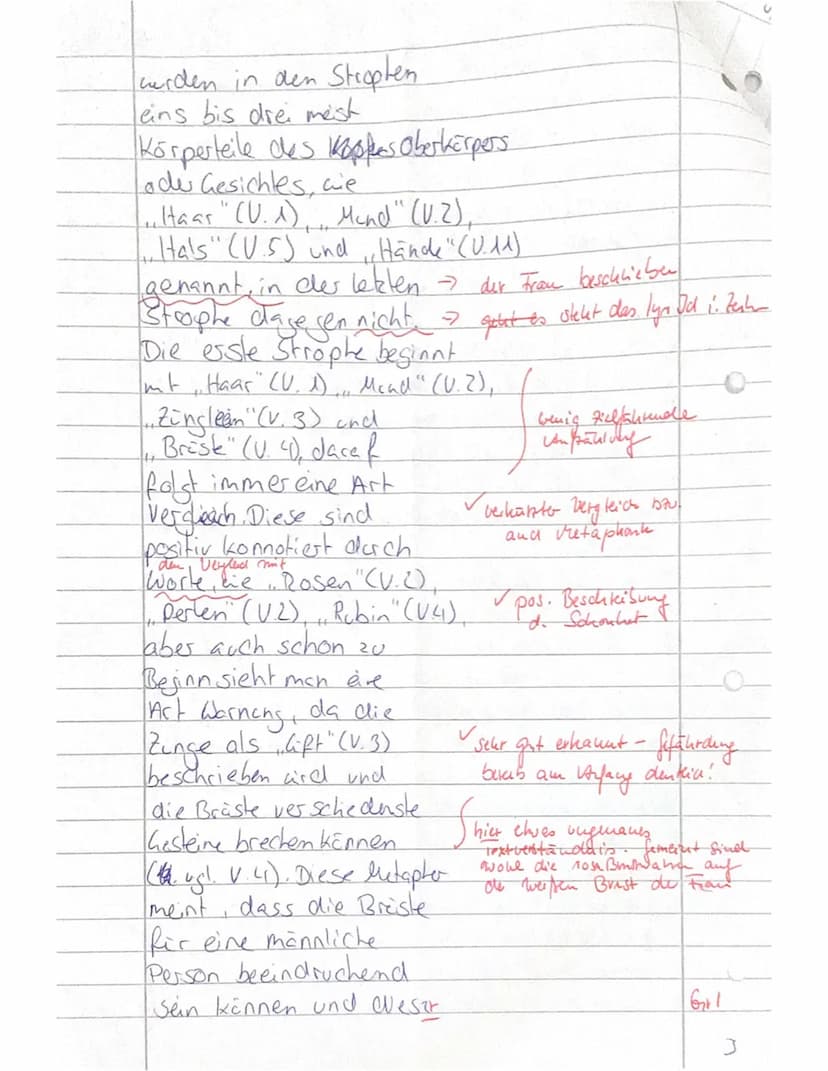 werden in den Strophen
eins bis drei meist
Körperteile des Oberkörpers
oder Gesichtes, wie
„Haar" (V. 1), „Mund" (V.2),
„Hals" (V.5) und „Hände" (V.11)
genannt, in der letzten → der Frau beschrieben
Strophe dagegen nicht. → geht es steht das lyr Id i. Zentr
Die erste Strophe beginnt
mit „Haar" (V. 1) „Mund" (V.2),
„Zünglein" (V. 3) und wenig zielführende
„Brüste" (V. 4), darauf Aufzählung
folgt immer eine Art
Vergleich. Diese sind ✓ verkürzter Vergleich bzw.
positiv konnotiert durch auch Metaphorik
den Vergleich mit
Worte, wie „Rosen" (V.2),
„Perlen" (V.2), „Rubin" (V.4), ✓ pos. Beschreibung
d. Schönheit
aber auch schon zu
Beginn sieht man eine
Art Warnung, da die
Zunge als „Gift" (V.3) ✓ sehr gut erkannt – Gefährdung
beschrieben wird und am Anfang
die Brüste verschiedenste
Gesteine brechen können hier etwas ungenaues
Textverständnis. Gemeint sind
(vgl. V. 4). Diese Metapher wohl die auf
der weißen Brust der Frau
meint, dass die Brüste
für eine männliche
Person beeindruckend
sein können und dieser Gr!
3